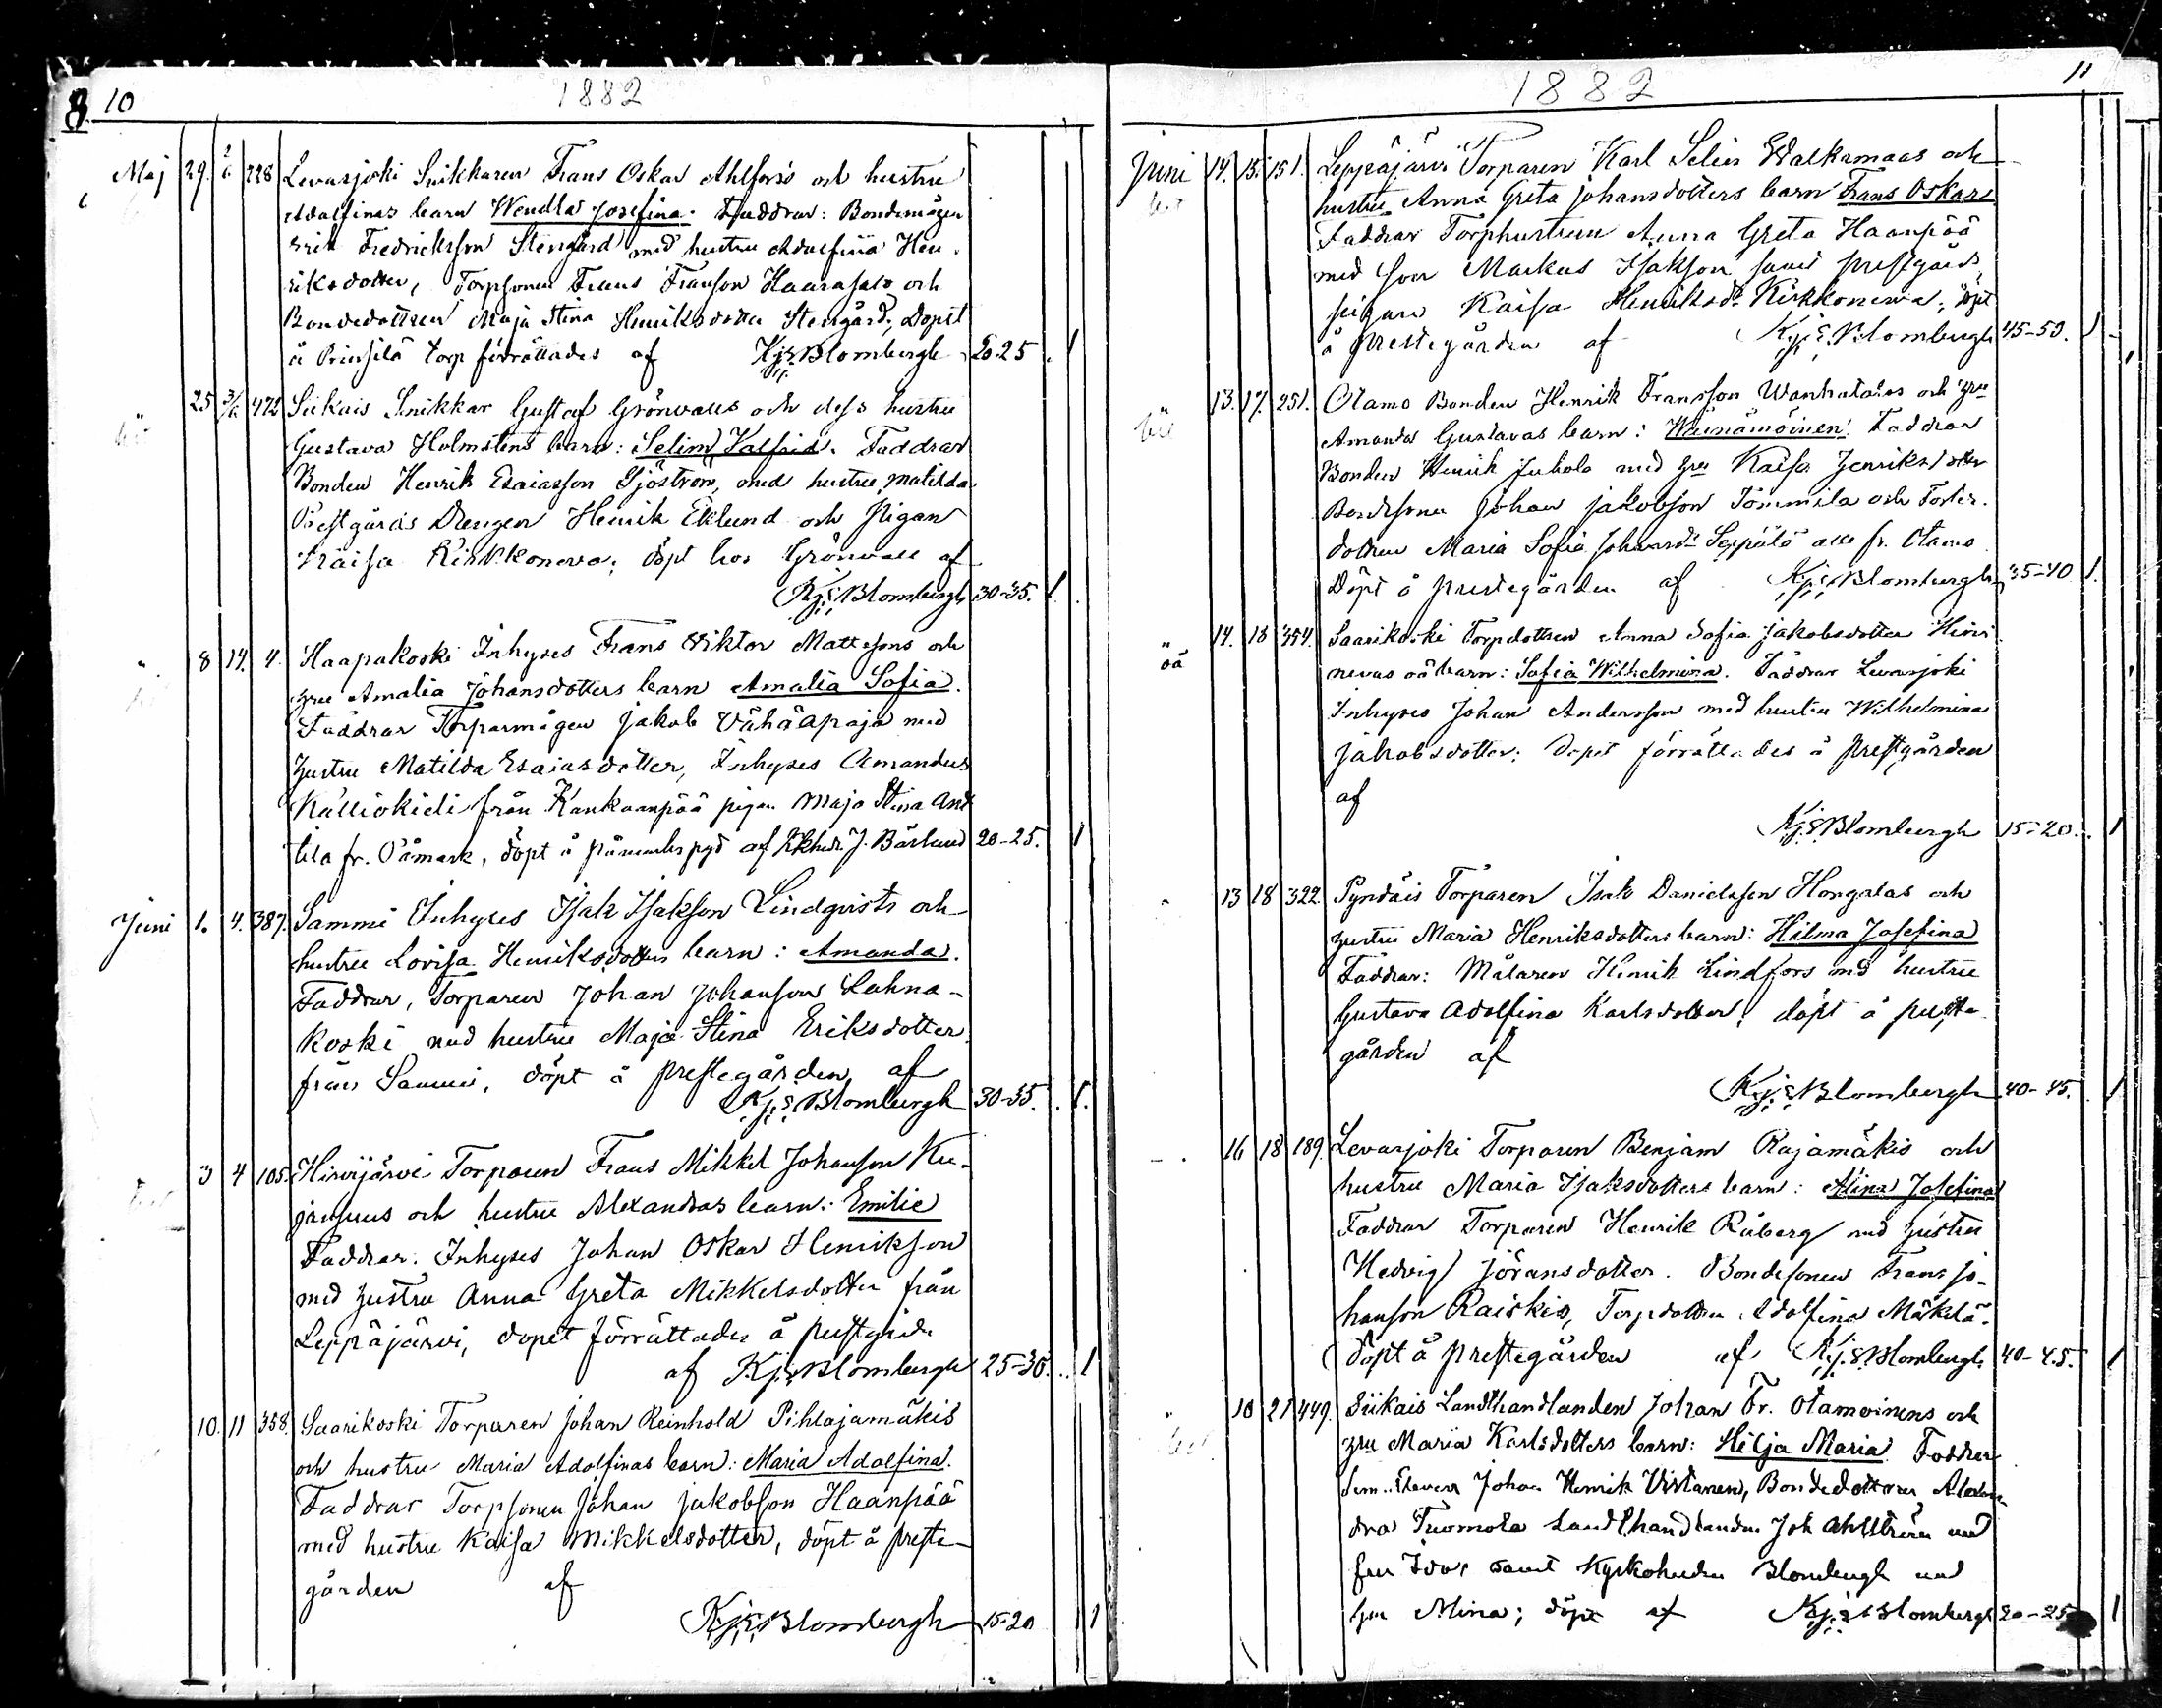 8 10 1882
Maj 29. 2/6 228 Levasjoki Snikkaren Frans Oskar Ahlfors's och hustru
Adolfinas barn Wendla Josefina. Faddrar: Bondemågen
Erik Fredricksson Stengård med hustru Adolfina Hen-
riksdotter, Torpsonen Frans Fransson Haarasalo och
Bondedottren Maja Stina Henriksdotter Stengård; Dopet
å torp förrättades af Kj: E. Blombergh 20-25 1
25 3/6 472 Siikais Snikkar Gustaf Grönvalls och dess hustru
Gustava Holmstens barn: Selim Valfrid. Faddrar
Bonden Henrik Esaiasson Sjöström, med hustru Matilda
Prestgårds Drengen Henrik Eklund och Pigan
Kaisa Kirkkoneva; döpt hos Grönvall af
Kj: E. Blombergh 30-35. 1.
" 8 14. 4. Haapakoski Inhyses Frans Viktor Mattssons och
hru Amalia Johansdotters barn Amalia Sofia.
Faddrar Torparmågen Jakob Vähäapaja med
hustru Matilda Esaiasdotter, Inhyses Amandus
Kalliokidi från Kankaanpää pigan Maja Stina Ant
tila fr. Påmark, döpt å af J. Bärlund 20-25. 1
Juni 1. 4. 387. Sammi Inhyses Isak Isaksson Lindqvists och
hustru Lovisa Henriksdotters barn: Amanda.
Faddrar, Torparen Johan Johansson Lahna-
koski med hustru Maja Stina Eriksdotter
från Sammi, döpt å prestegården af
Kj: E. Blombergh 30-35. 1.
3 4 105. Hirvijärvi Torparen Frans Mikkel Johansson Ku-
och hustru Alexandras barn: Emilie
Faddrar. Inhyses Johan Oskar Henriksson
med hustru Anna Greta Mikkelsdotter från
Leppäjärvi, dopet förrättades å prestgården
af Kj: E. Blombergh 25-30. 1
10. 11 358. Saarikoski Torparen Johan Reinhold Pihlajamäkis
och hustru Maria Adolfinas barn: Maria Adolfina.
Faddrar Torpsonen Johan Jakobsson Haanpää
med hustru Kaisa Mikkelsdotter, döpt å preste-
gården af
Kj: E. Blombergh 15-20 1
1882 11
Juni 14. 15. 151. Leppäjärvi Torparen Karl Selin Walkamaas och
hustru Anna Greta Johansdotters barn Frans Oskar
Faddrar Torphustrun Anna Greta Haanpää
med son Markus Isaksson samt prestgårds
pigan Kaisa Henriksdr Kirkkoneva; döpt
å prestegården af Kj: E. Blombergh 45-50. 1
13. 17. 251. Otamo Bonden Henrik Fransson Wanhatalos och hru
Amanda Gustavas barn: Wäinämöinen. Faddrar
Bonden Henrik Juhola med hru Kaisa Henriksdotter
Bondsonen Johan Jakobsson Tommila och Foster-
dottren Maria Sofia Johansdr Seppälä alla fr. Otamo
Döpt å prestegården af Kj: E. Blombergh 35-40 1.
" oä 14. 18 354. Saarikoski Torpdottren Anna Sofia Jakobsdotter Hiiri
nevas oä barn: Sofia Wilhelmina. Faddrar Levasjoki
Inhyses Johan Andersson med hustru Wilhelmina
Jakobsdotter; Dopet förrättades å prestgården
af
Kj: E. Blombergh 15-20. 1
13 18 322 Pyndäis Torparen Isak Danielsson Hongalas och
hustru Maria Henriksdotters barn: Hilma Josefina
Faddrar: Målaren Henrik Lindfors med hustru
Gustava Adolfina Karlsdotter; döpt å preste-
gården af
Kj: E. Blombergh 40-45. 1
16 18 189. Levasjoki Torparen Benjam Rajamäkis och
hustru Maria Isaksdotters barn: Alina Josefina
Faddrar Torparen Henrik Råberg med hustru
Hedvig Göransdotter. Bondesonen Frans Jo-
hansson Raiskio, Torpdottren Adolfina Mäkelä.
Döpt å prestegården af Kj: E. Blombergh 40-45. 1
" 10 21 449. Siikais Landthandlanden Johan Fr. Otamoinens och
hru Maria Karlsdotters barn: Hilja Maria Faddrar
Sem. Eleven Johan Henrik Virtanen, Bondedottren Alexan-
dra Tuomola Landthandlanden Joh. Ahlström med
fru Ida, samt Kyrkoherden Blombergh med
fru Mina; döpt af Kj: E. Blombergh 20-25 1